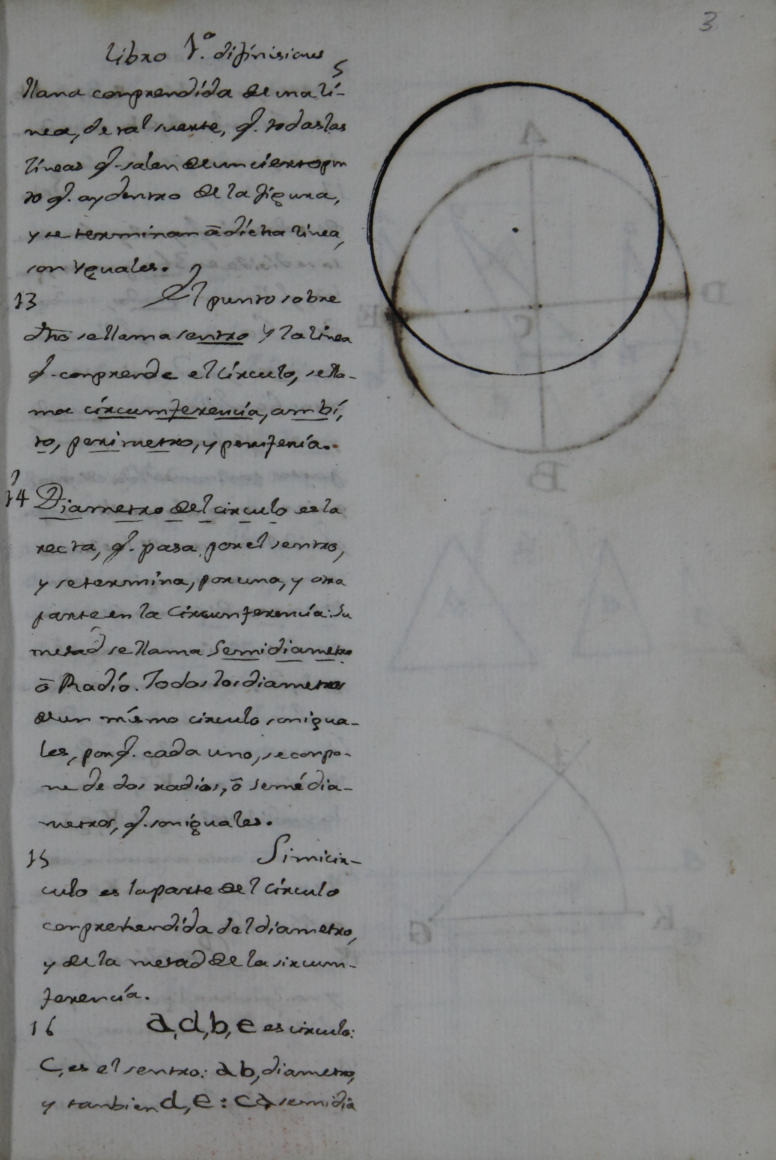 3
Libro 1º. difinisiones
5
llana comprendida de una lí-
nea, de tal suerte, q. todas las
líneas q. salen de un cierto pun
to q. ay dentro de la figura,
y se terminan ā dicha línea,
son yguales.
13 El punto sobre
dho se llama sentro y la línea
q. conprende el círculo, se lla-
ma círcumferencía, ambí,
to, perimetro, y periferia.
14 Diametro del circulo es la
recta, q. pasa por el sentro,
y se termina, por una, y otra
parte en la Circumferencía: Su
metad se llama Semidiametro
ō Radío. Todos los diametros
de un mismo circulo son igua-
les, por q. cada uno, se conpo-
ne de dos radios, ō semédia-
metros, q. son iguales.
15 Simicir-
culo es la parte del círculo
conprehendida del diametro,
y de la metad de la sircum-
ferencía.
16 a,d,b,e es circulo:
C, es el sentro: ab, diametro,
y tanbien d,e: ca semidia
A
D
E
C
B
G
K